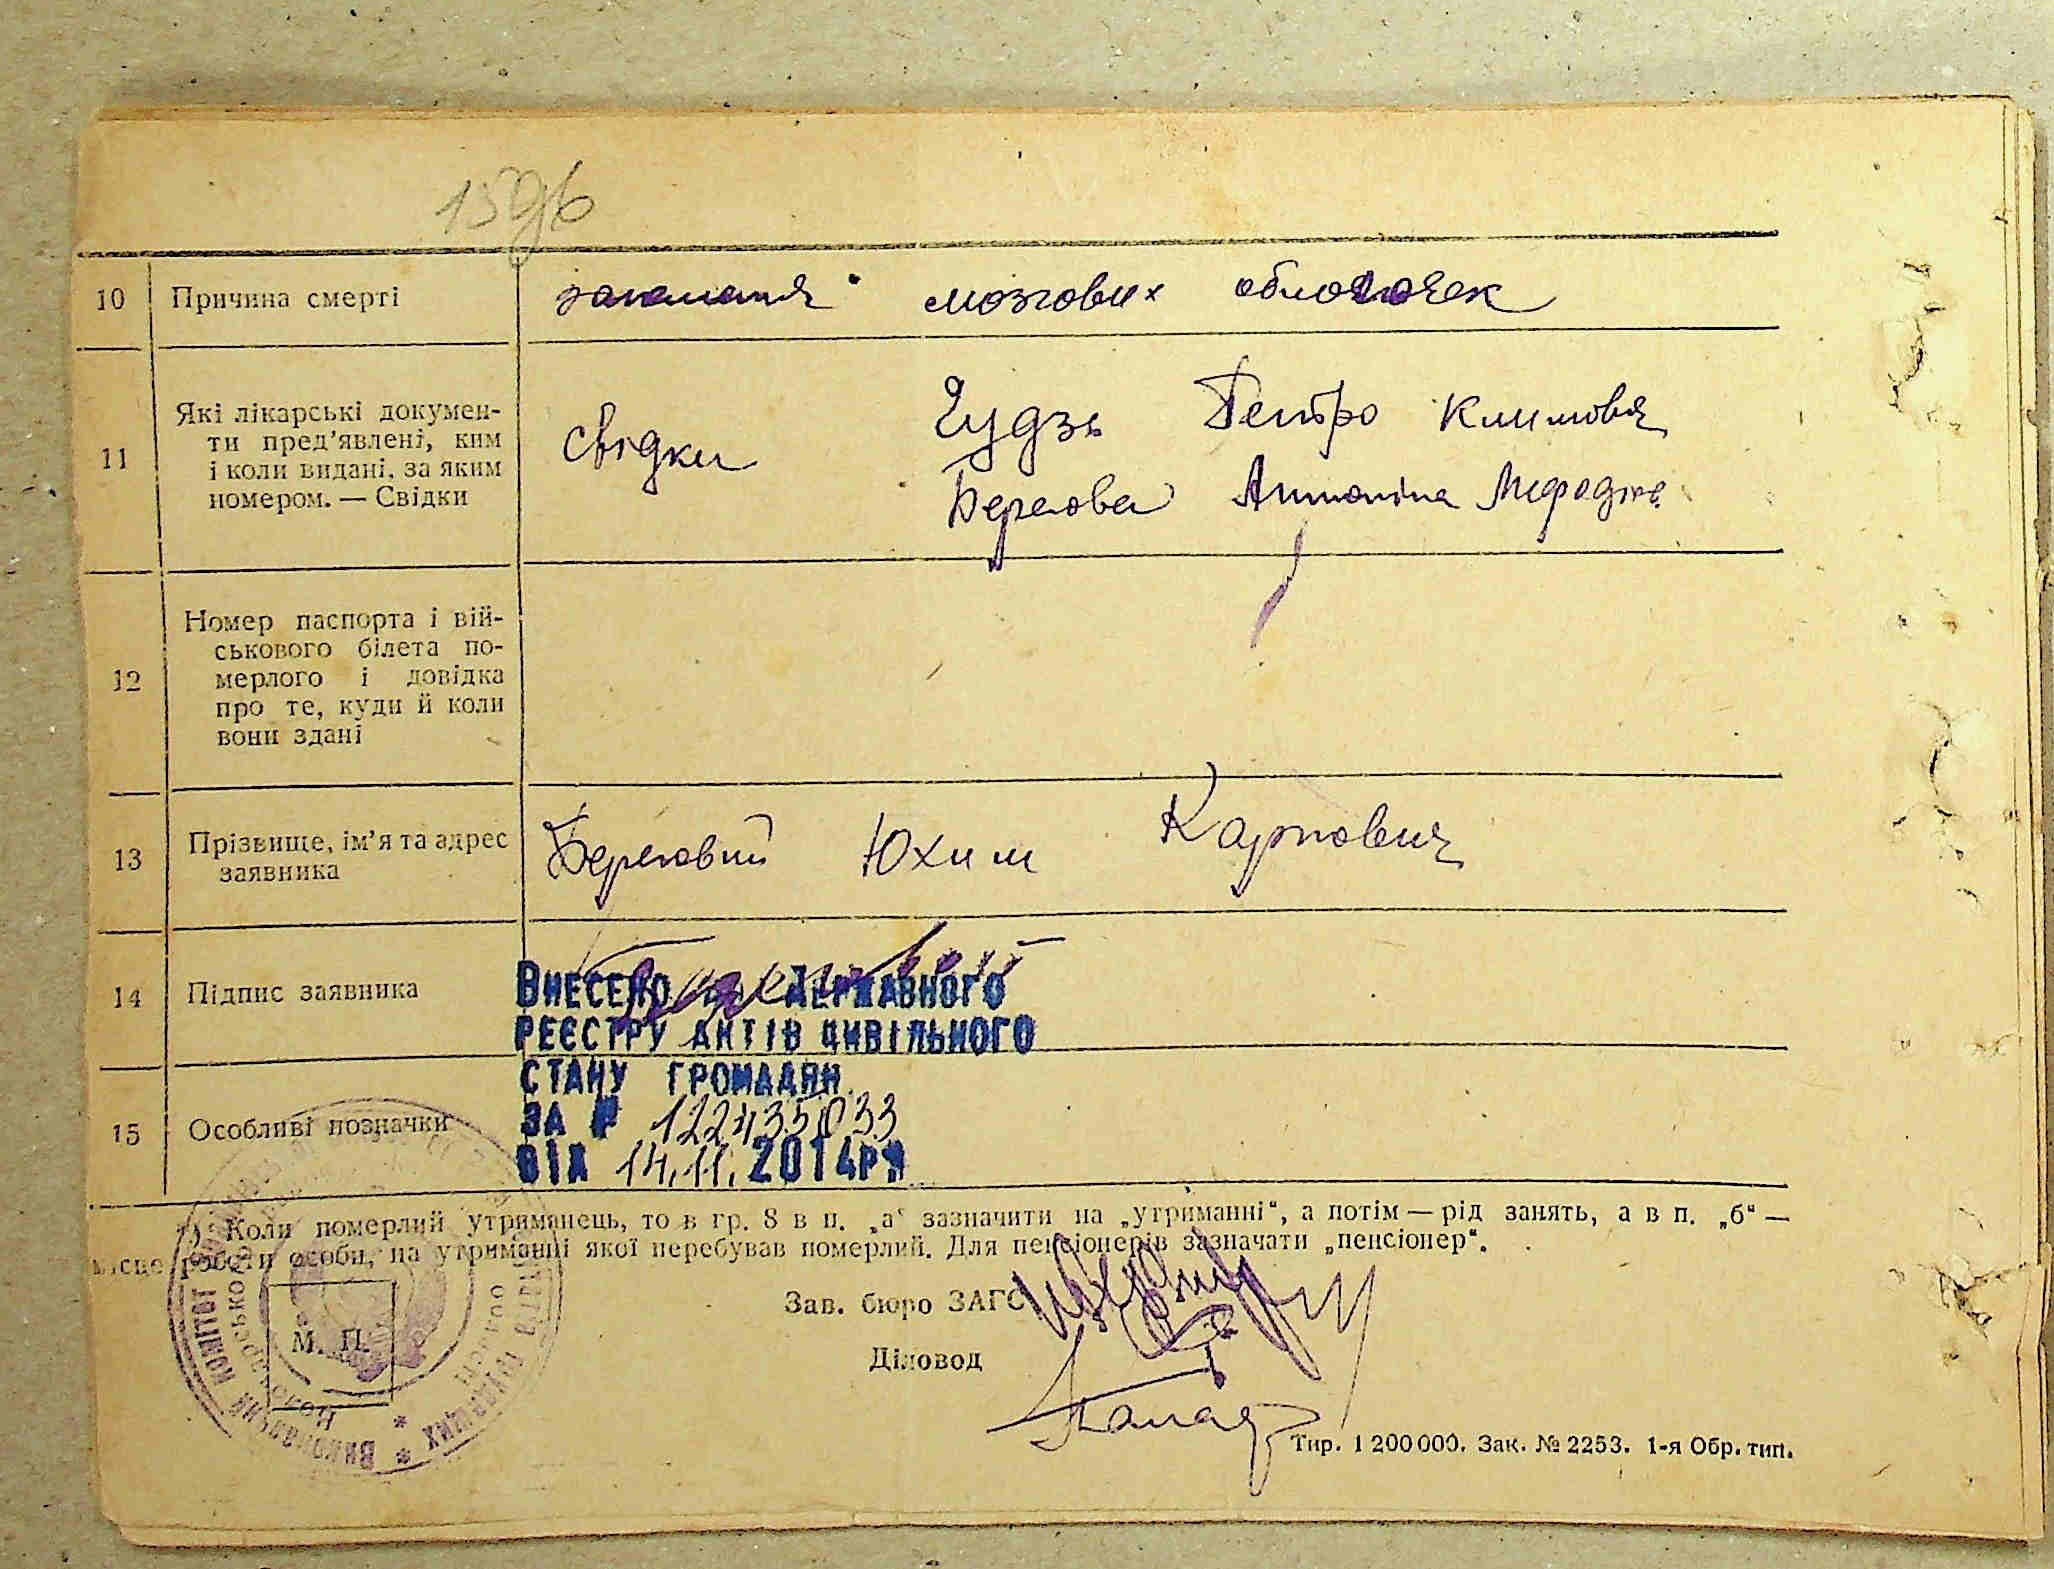 159
10 Причина смерті
запалення мозгових оболочек
11 Які лікарські докумен-
ти пред'явлені, ким
і коли видані, за яким
номером. — Свідки
свідки Гудзь Петро Климович
Берегова Антоніна Мефодіїв
12 Номер паспорта і вій-
ськового білета по-
мерлого і довідка
про те, куди й коли
вони здані
13 Прізвище, ім'я та адрес
заявника
Береговий Юхим Карпович
14 Підпис заявника
Внесено до Державного
реєстру актів цивільного
стану громадян
15 Особливі позначки
за № 122435033
від 14.11.2014р
1) Коли померлий утриманець, то в гр. 8 в п. „а“ зазначити на „утриманні“, а потім — рід занять, а в п. „б“ —
місце роботи особи, на утриманні якої перебував померлий. Для пенсіонерів зазначати „пенсіонер“.
Зав. бюро ЗАГС
М. П.
Діловод
Виконавчий комітет
Тир. 1 200 000. Зак. № 2253. 1-я Обр. тип.